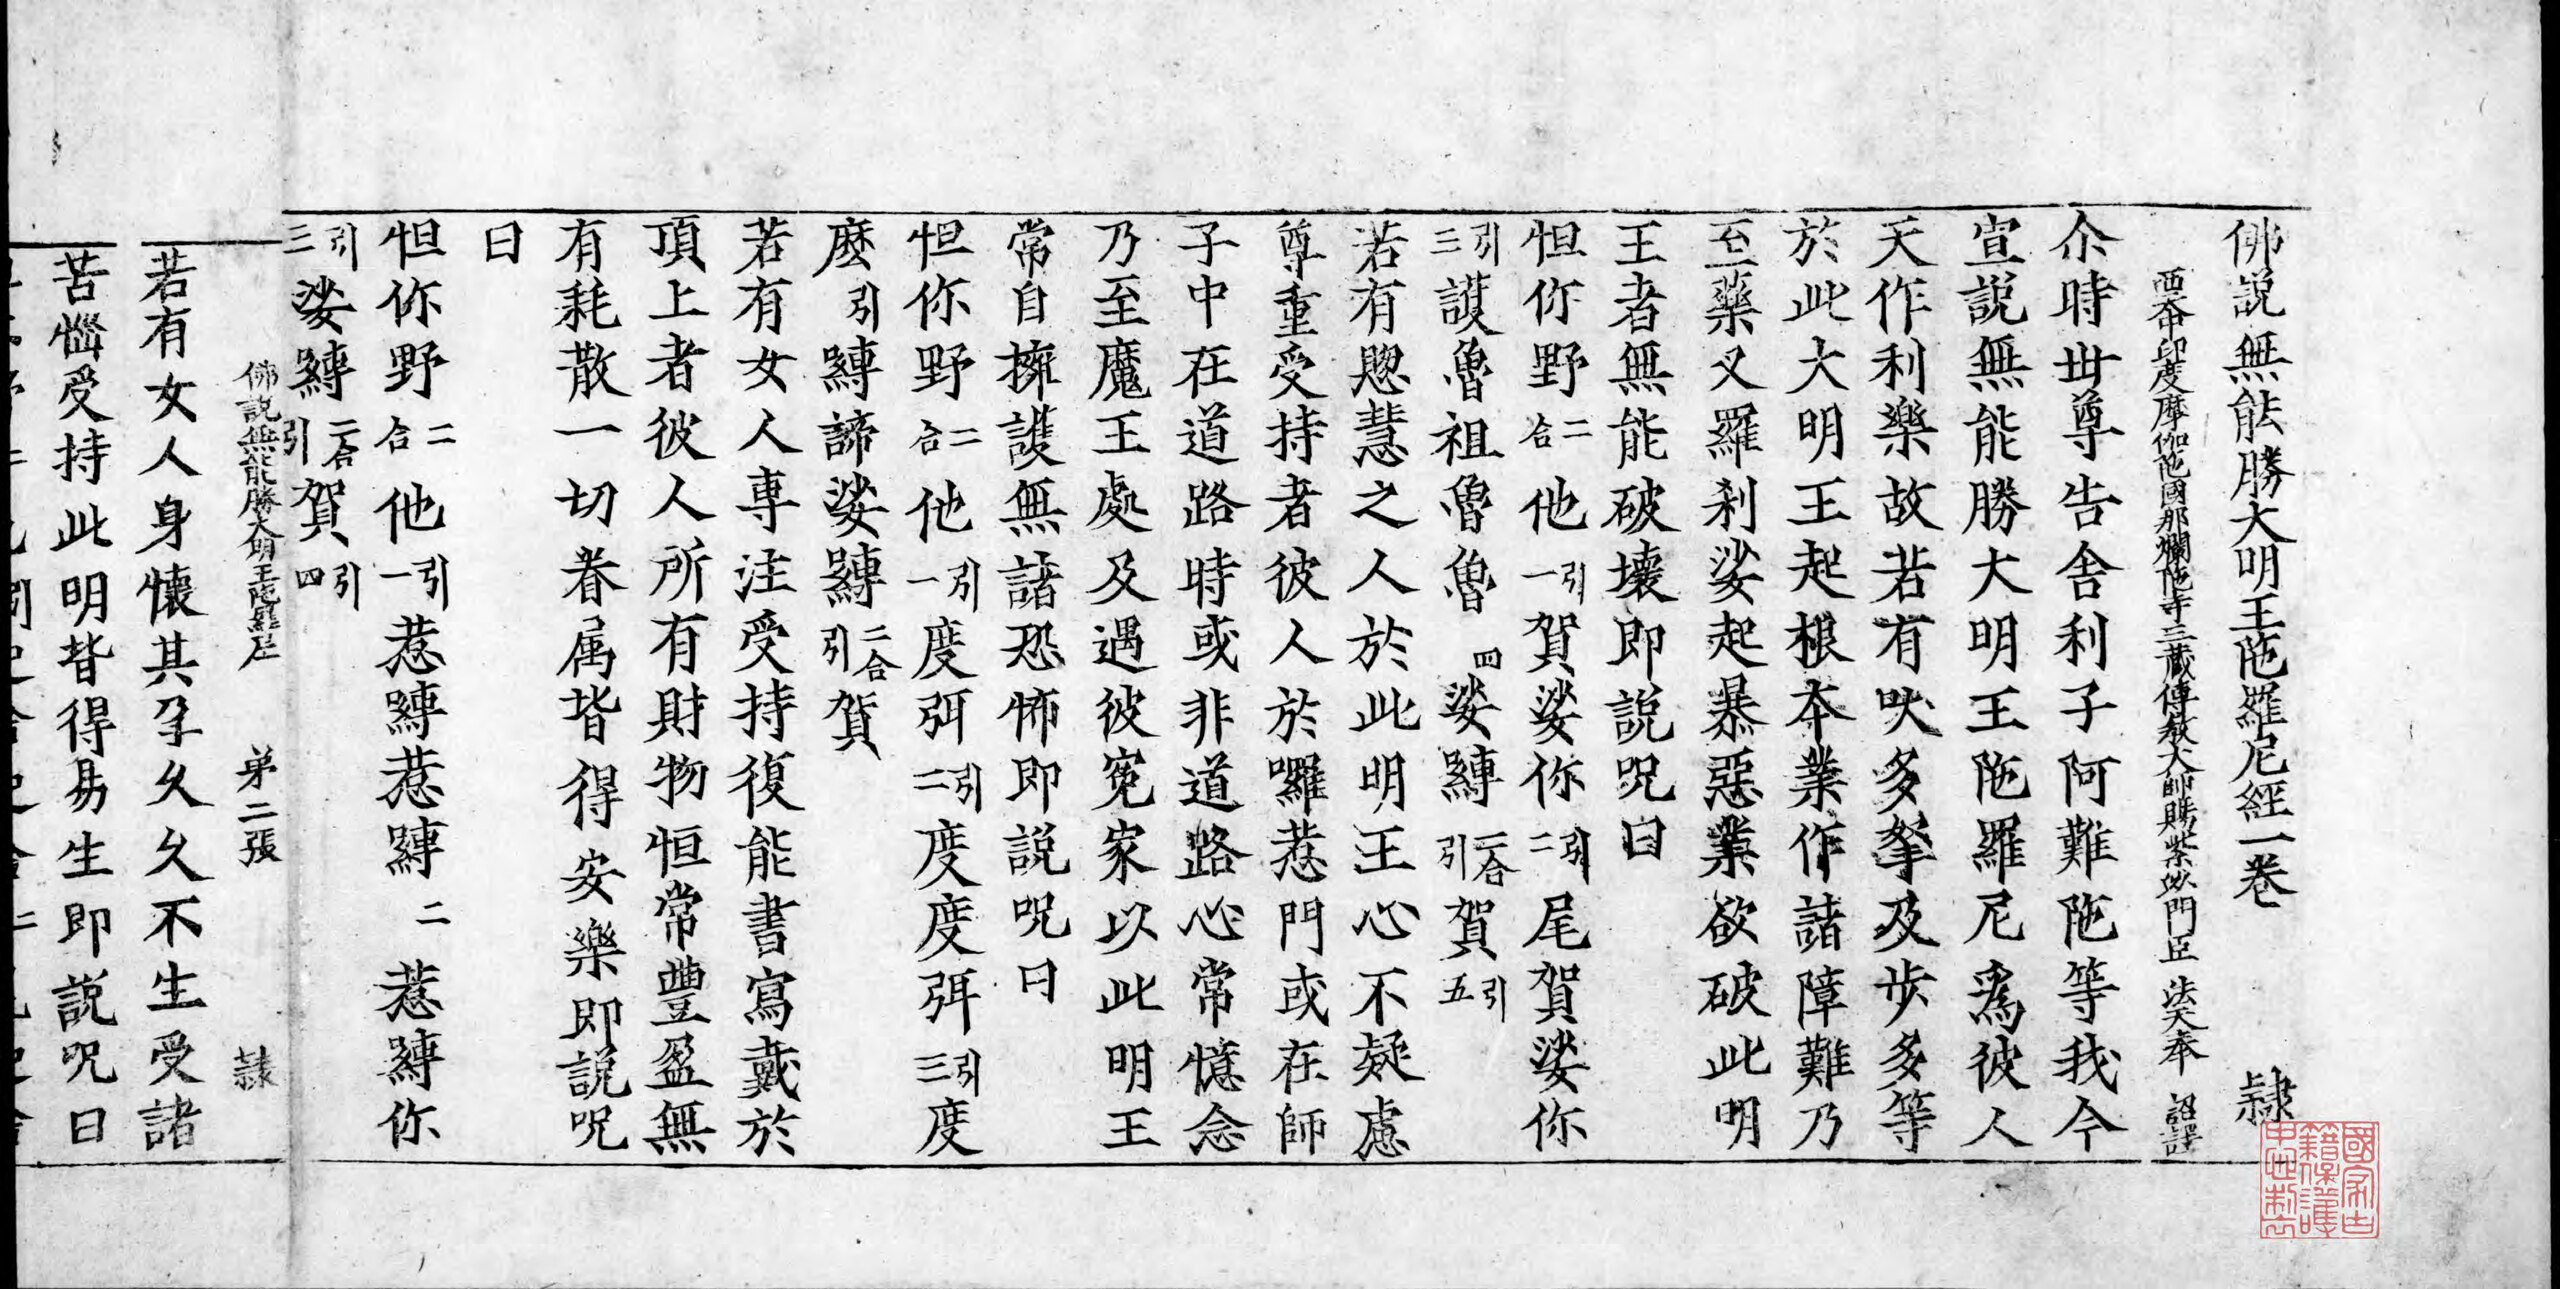 佛說無能勝大明王陁羅尼經一卷 隷
西天中印度摩伽陁國那爛陁寺三藏傳教大師賜紫沙門臣法天奉 詔譯
尒時世尊告舍利子阿難陁等我今
宣說無能勝大明王陁羅尼爲彼人
天作利樂故若有吠多拏及步多等
於此大明王起根本業作諸障難乃
至藥叉羅刹娑起暴惡業欲破此明
王者無能破壞即說呪曰
怛你野二合他引一賀娑你引二尾賀娑你
引三護魯祖魯魯四娑嚩二合引賀引五
若有愍慧之人於此明王心不疑慮
尊重受持者彼人於囉惹門或在師
子中在道路時或非道路心常憶念
乃至魔王處及遇彼冤家以此明王
常自擁護無諸恐怖即說呪曰
怛你野二合他引一度弭引二度度弭引三度
麽引嚩諦娑嚩二合引賀
若有女人專注受持復能書寫戴於
頂上者彼人所有財物恒常豐盈無
有耗散一切眷属皆得安樂即說呪
曰
怛你野二合他引一惹嚩惹嚩二惹嚩你
引三娑嚩二合引賀引四
佛說無能勝大明王陁羅尼 弟二張 隷
若有女人身懷其孕久久不生受諸
苦惱受持此明皆得易生即說呪曰
國家古籍保護中心制